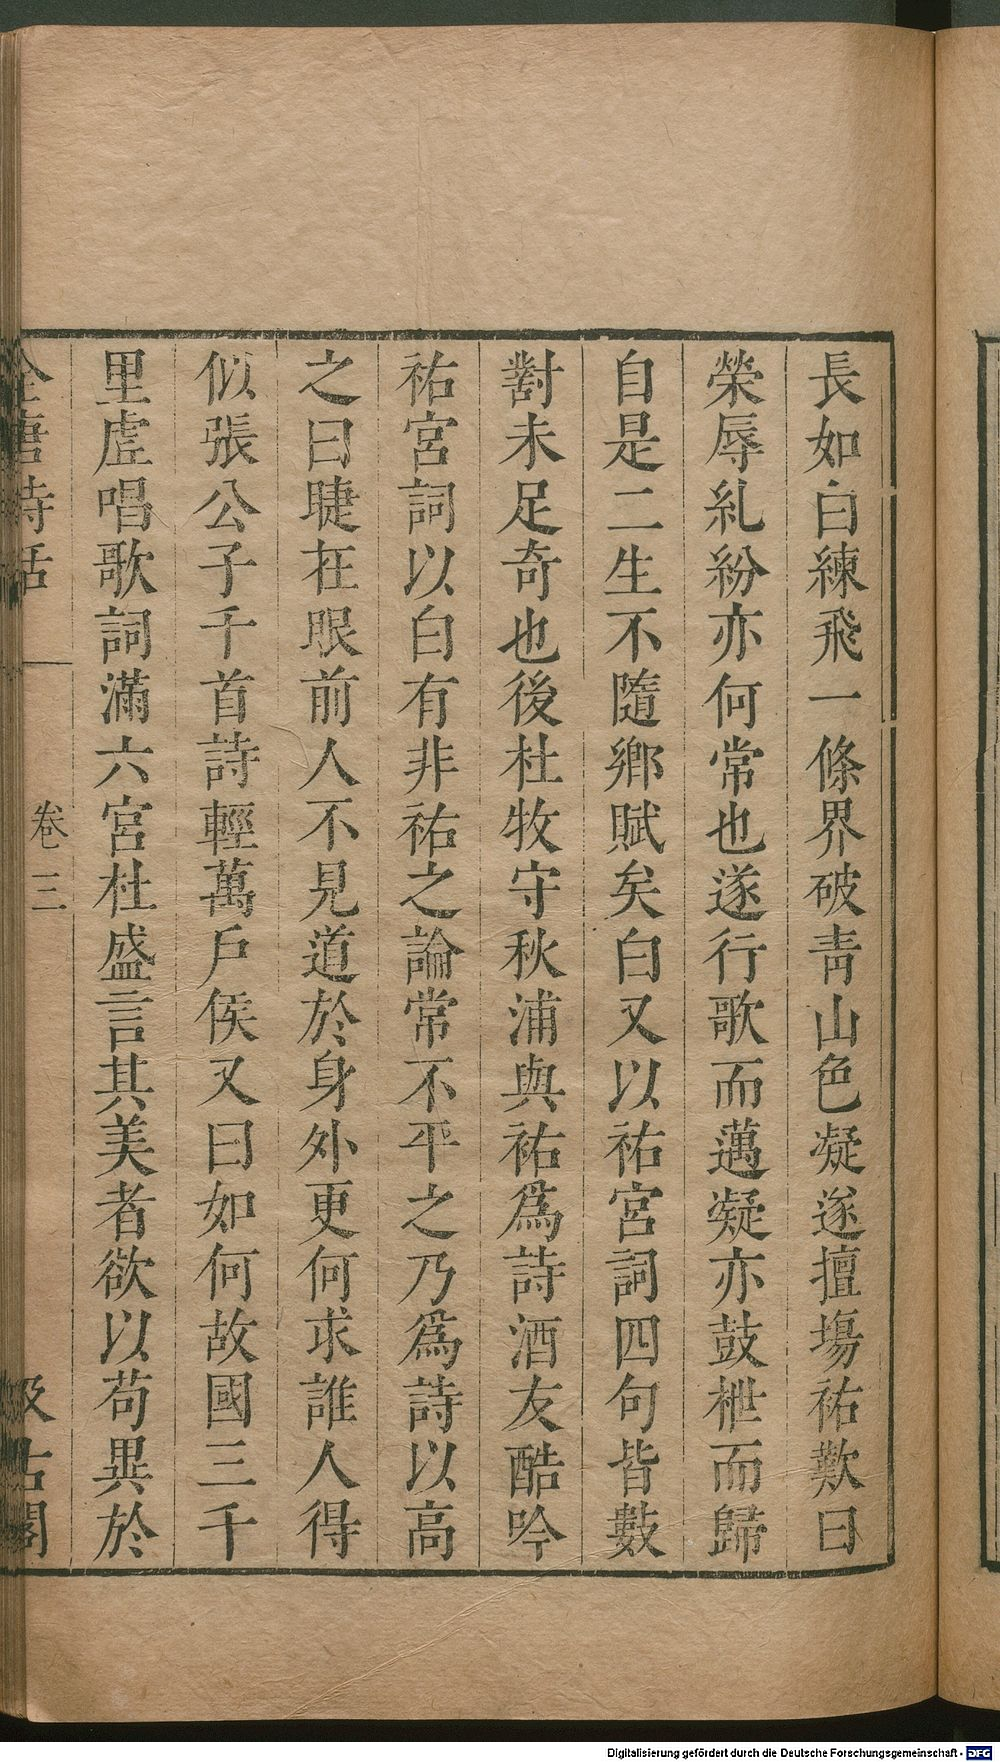 長如白練飛一條界破靑山色凝遂擅塲祐歎曰
榮辱糺紛亦何常也遂行歌而邁凝亦鼓枻而歸
自是二生不隨鄉賦矣白又以祐宮詞四句皆數
對未足奇也後杜牧守秋浦與祐爲詩酒友酷吟
祐宮詞以白有非祐之論常不平之乃爲詩以高
之曰睫在眼前人不見道於身外更何求誰人得
似張公子千首詩輕萬戶侯又曰如何故國三千
里虛唱歌詞滿六宮杜盛言其美者欲以苟異於
全唐詩話 卷三 汲古閣
Digitalisierung gefördert durch die Deutsche Forschungsgemeinschaft - DFG